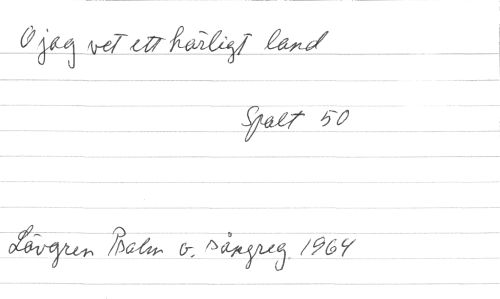 O jag vet ett härligt land
Spalt 50
Lövgren Psalm o. sångreg. 1964